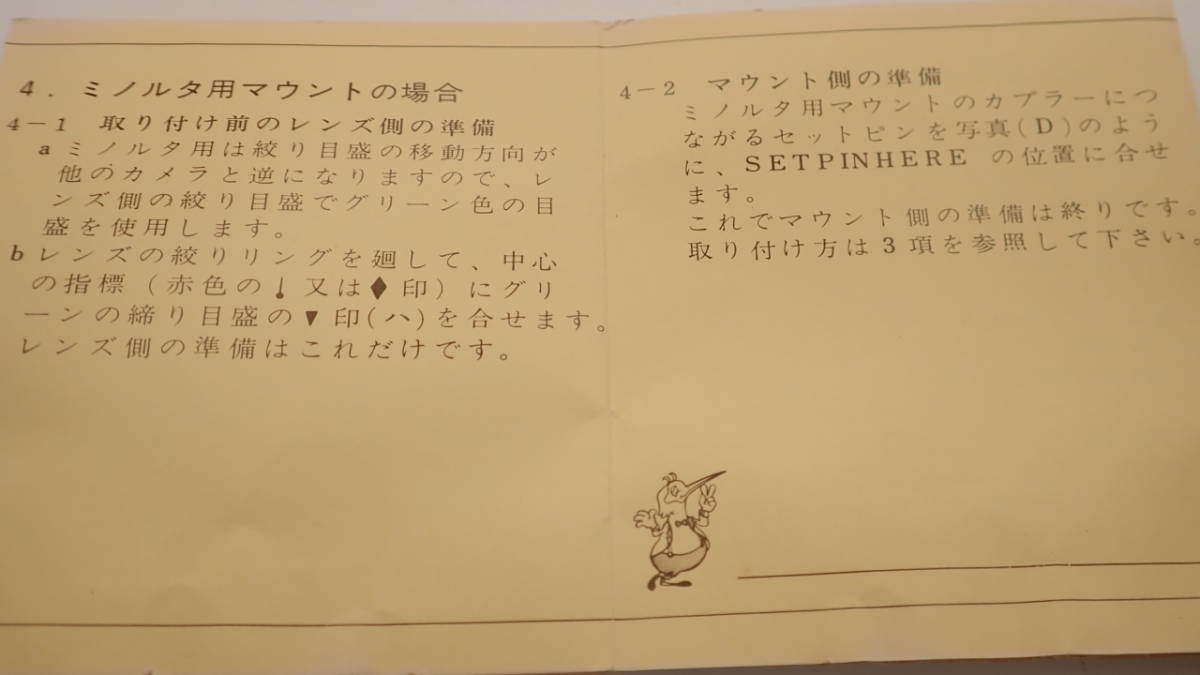 4. ミノルタ用マウントの場合
4−1 取り付け前のレンズ側の準備
a ミノルタ用は絞り目盛の移動方向が
他のカメラと逆になりますので、レ
ンズ側の絞り目盛でグリーン色の目
盛を使用します。
b レンズの絞りリングを廻して、中心
の指標(赤色の↓又は♦印)にグリ
ーンの締り目盛の▼印(ハ)を合せます。
レンズ側の準備はこれだけです。
4−2 マウント側の準備
ミノルタ用マウントのカプラーにつ
ながるセットピンを写真(D)のよう
に、SETPINHERE の位置に合せ
ます。
これでマウント側の準備は終りです。
取り付け方は3項を参照して下さい。